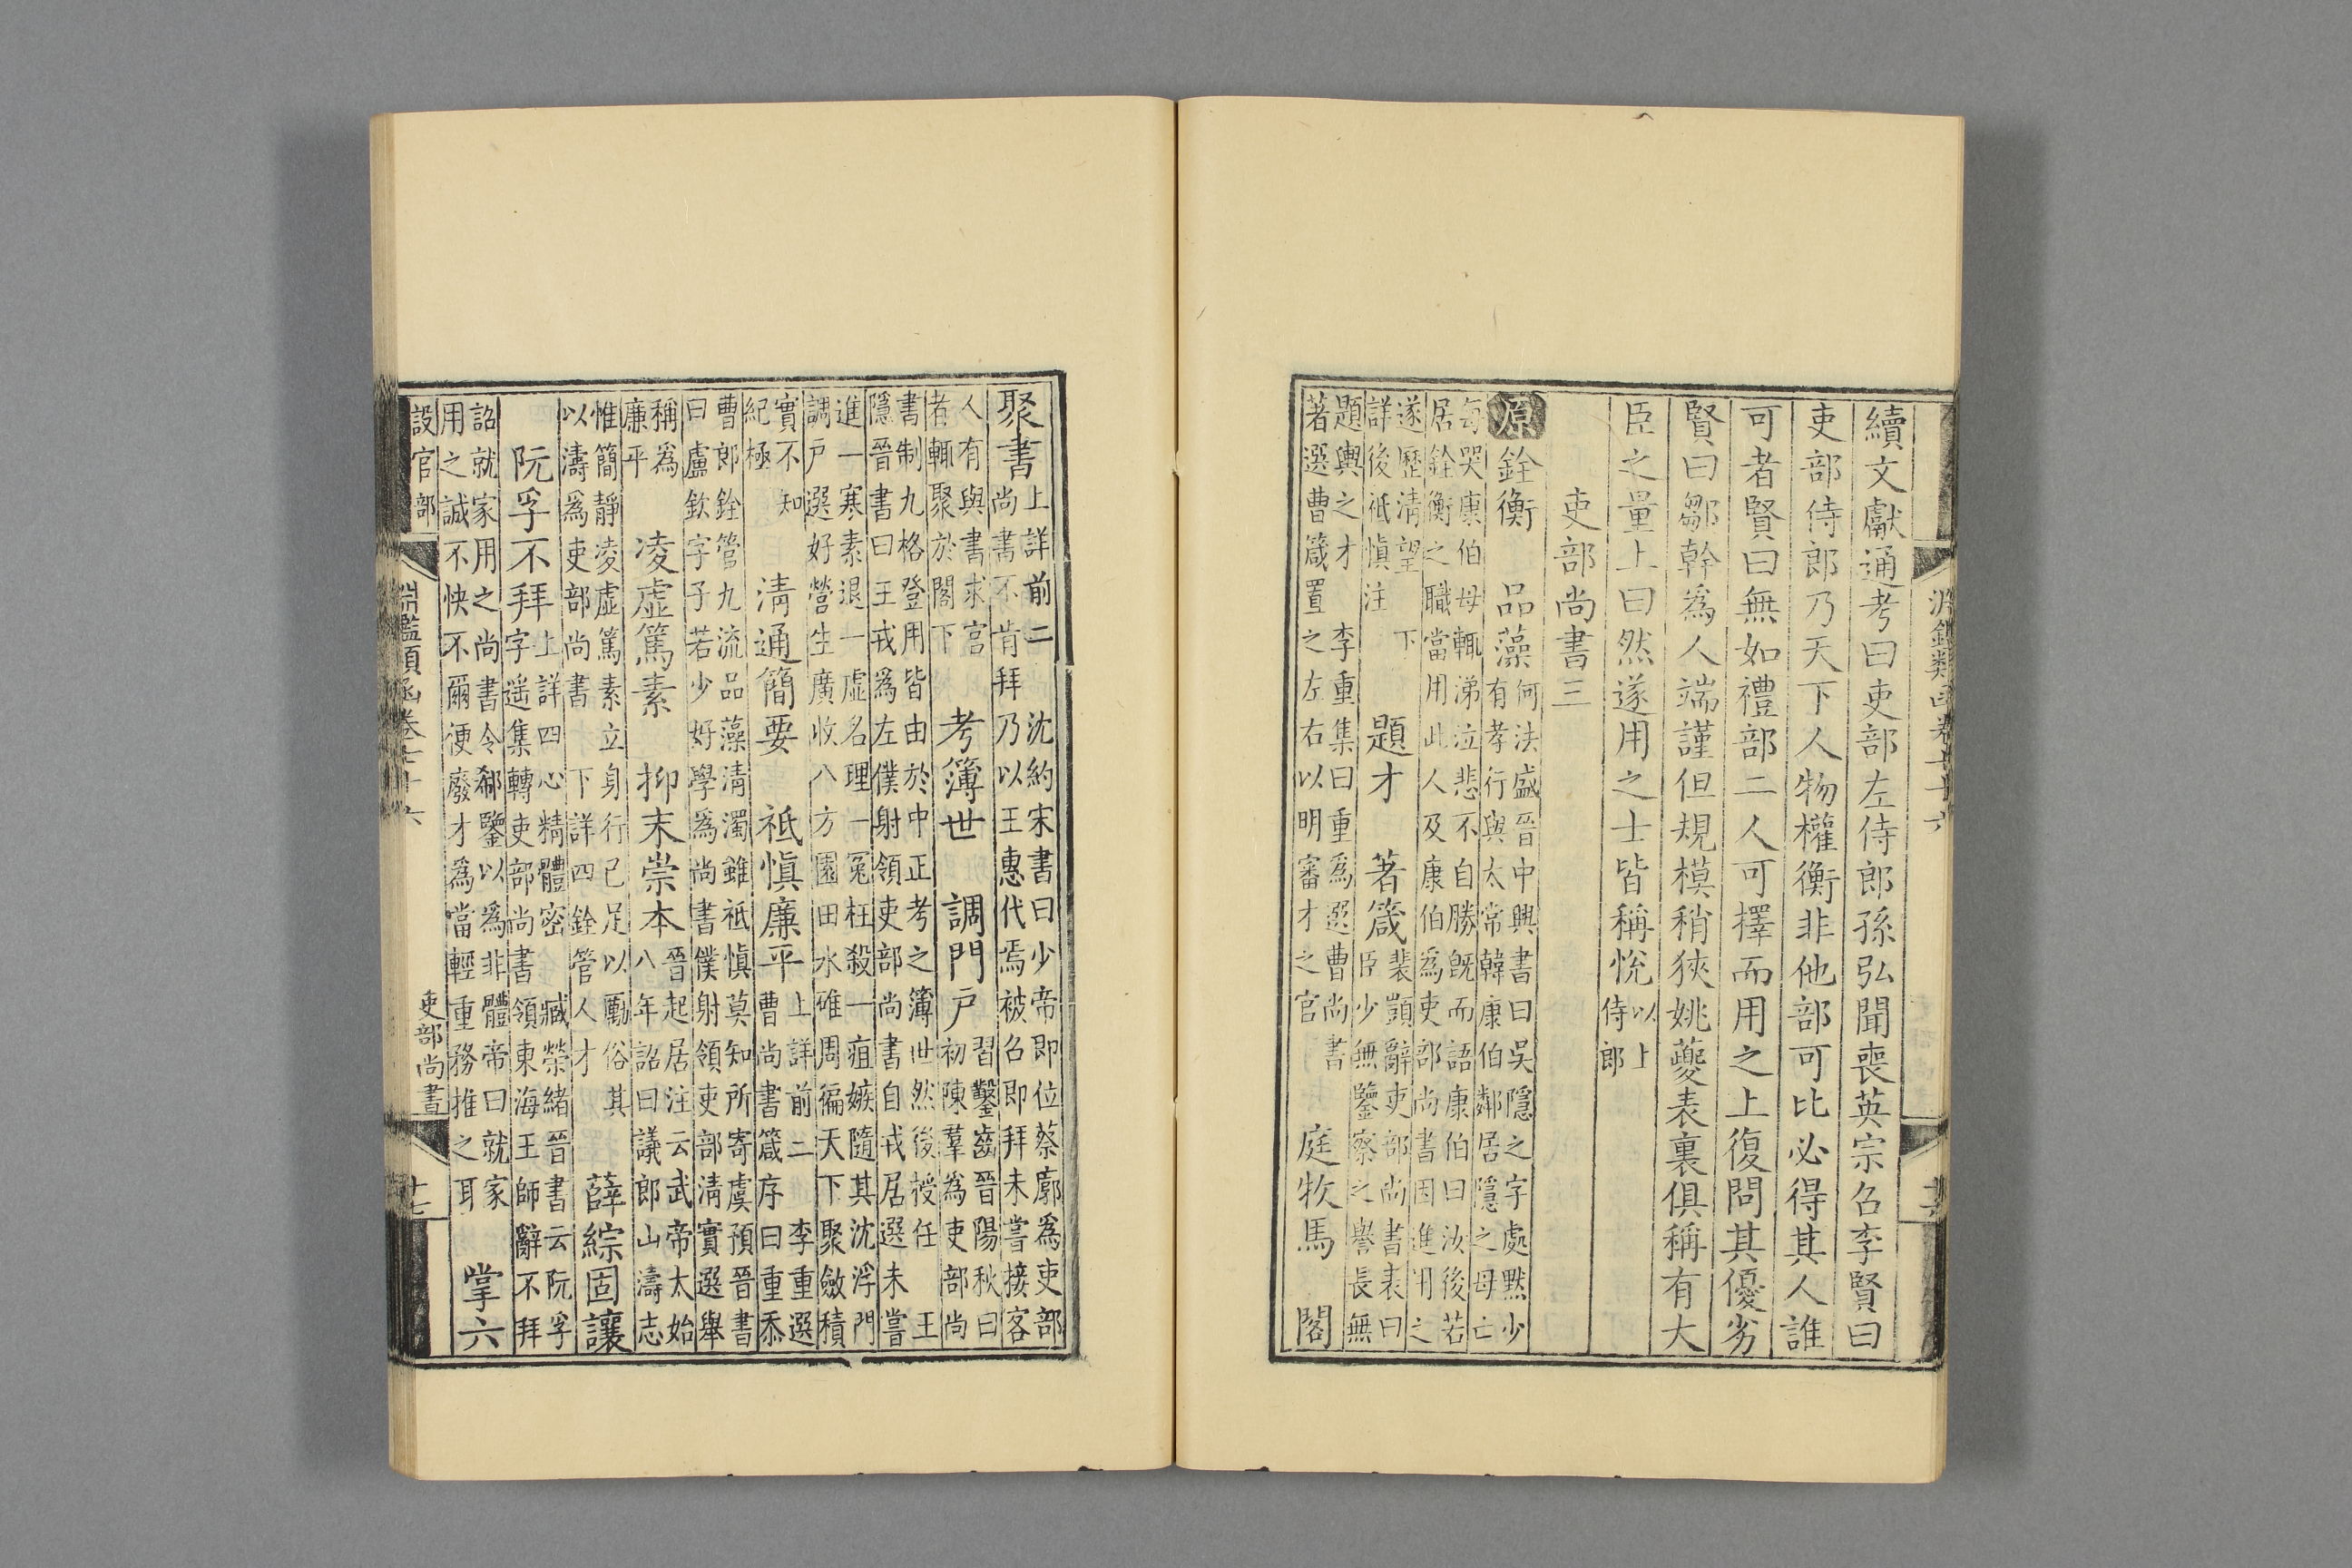 淵鑑類函卷七十六
續文獻通考曰吏部左侍郎孫弘聞喪英宗召李賢曰
吏部侍郎乃天下人物權衡非他部可比必得其人誰
可者賢曰無如禮部二人可擇而用之上復問其優劣
賢曰鄒幹爲人端謹但規模稍狹姚夔表裏俱稱有大
臣之量上曰然遂用之士皆稱悅以上侍郎
吏部尚書三
原銓衡 品藻何法盛晉中興書曰吳隱之字處默少有孝行與太常韓康伯鄰居隱之母亡
每哭康伯母輒涕泣悲不自勝旣而語康伯曰汝後若居銓衡之職當用此人及康伯爲吏部尚書因進用之
遂歷清望下詳後祗愼注 題才 著箴裴頠辭吏部尚書表曰臣少無鑒察之譽長無
題輿之才 李重集曰重爲選曹尚書著選曹箴置之左右以明審才之官 庭牧馬 閣
聚書上詳前二 沈約宋書曰少帝即位蔡廓爲吏部尚書不肯拜乃以王惠代焉被召即拜未嘗接客
人有與書求官者輒聚於閣下 考簿世 調門戸習鑿齒晉陽秋曰初陳羣爲吏部尚
書制九格登用皆由於中正考之簿世然後授任 王隱晉書曰王戎爲左僕射領吏部尚書自戎居選未嘗
進一寒素退一虛名理一冤枉殺一疽嫉隨其沈浮門調戸選好營生廣收八方園田水碓周徧天下聚斂積
實不知紀極 清通簡要 祗愼廉平上詳前二 李重選曹尚書箴序曰重忝
曹郎銓管九流品藻清濁雖祗愼莫知所寄虞預晉書曰盧欽字子若少好學爲尚書僕射領吏部清實選舉
稱爲廉平 凌虛篤素 抑末崇本晉起居注云武帝太始八年詔曰議郎山濤志
惟簡靜凌虛篤素立身行己足以勵俗其以濤爲吏部尚書 下詳四銓管人才 薛綜固讓
阮孚不拜上詳四心精體密 臧榮緒晉書云阮孚字遥集轉吏部尚書領東海王師辭不拜
詔就家用之尚書令郗鑒以爲非體帝曰就家用之誠不快不爾便廢才爲當輕重務推之耳 掌六
設官部 淵鑑類函卷七十六 吏部尚書 十七